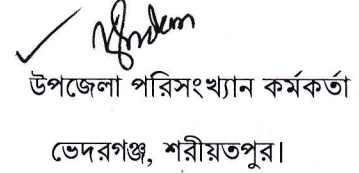 উপজেলা পরিসংখ্যান কর্মকর্তা
ভেদরগঞ্জ, শরীয়তপুর।